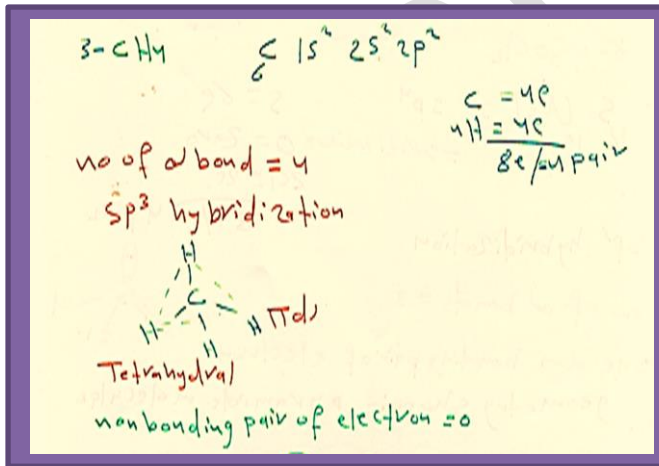 3- CH4 C 1S² 2S² 2p²
6
C = 4e
4H = 4e
8e/4 pair
no of σ bond = 4
Sp³ hybridization
H
C
H H Td
H
Tetrahydral
nonbonding pair of electron = 0